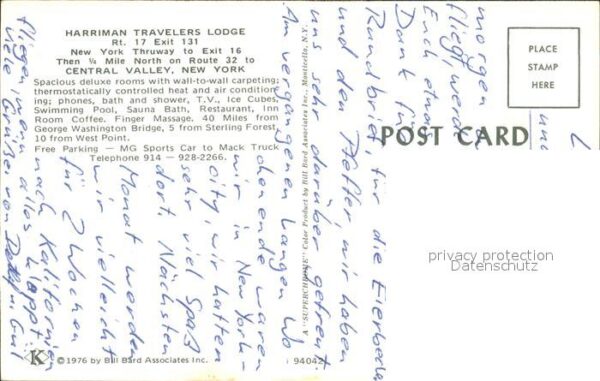 HARRIMAN TRAVELERS LODGE
Rt. 17 Exit 131
New York Thruway to Exit 16
Then ¾ Mile North on Route 32 to
CENTRAL VALLEY, NEW YORK
Spacious deluxe rooms with wall-to-wall carpeting;
thermostatically controlled heat and air condition-
ing; phones, bath and shower, T.V., Ice Cubes,
Swimming Pool, Sauna Bath, Restaurant, Inn
Room Coffee. Finger Massage. 40 Miles from
George Washington Bridge, 5 from Sterling Forest,
10 from West Point.
Free Parking — MG Sports Car to Mack Truck
Telephone 914 - 928-2266.
K
©1976 by Bill Bard Associates Inc.
94042
A "SUPERCHROME" Color Product by Bill Bard Associates Inc., Monticello, N.Y.
POST CARD
PLACE
STAMP
HERE
Dank für
Rundbrief, für die Eierbecher
und den Pfeffer, wir haben
uns sehr darüber gefreut.
Am vergangenen langen Wo
chenende waren
wir in New York-
city, wir hatten
sehr viel Spaß
dort. Nächsten
Monat werden
wir vielleicht
für 2 Wochen
nach Kalifornien
fliegen, wenn alles klappt.
Viele Grüße von
morgen
fliegt, werde
Euch etwas
und
privacy protection
Datenschutz